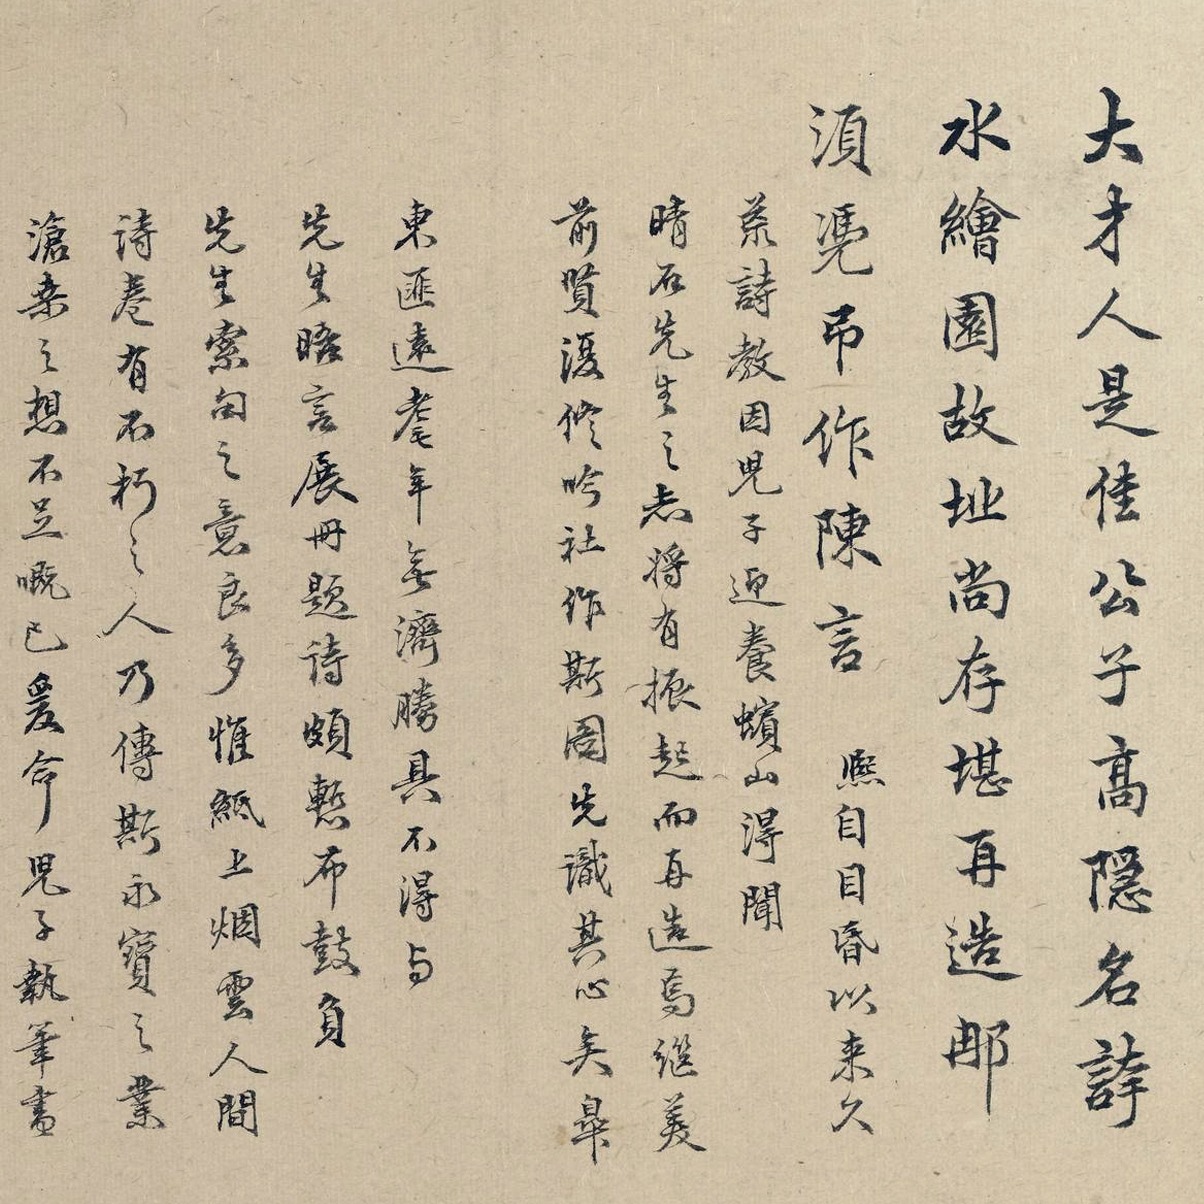 大才人是佳公子高隱名誇
水繪園故址尚存堪再造耶
須憑弔作陳言 熙自目昏以来久
荒詩教因児子迎養蠙山得聞
晴石先生之志将有振起而再造焉継美
前賢復修吟社作斯圖先識其心矣皋
東匪遠耄年無濟勝具不得与
先生晤言展冊題詩頗慙布鼓負
先生索句之意良多惟紙上烟雲人間
詩卷有不朽之人乃傳斯永寶之業
滄桒之想不足嘅已爰命児子執筆書